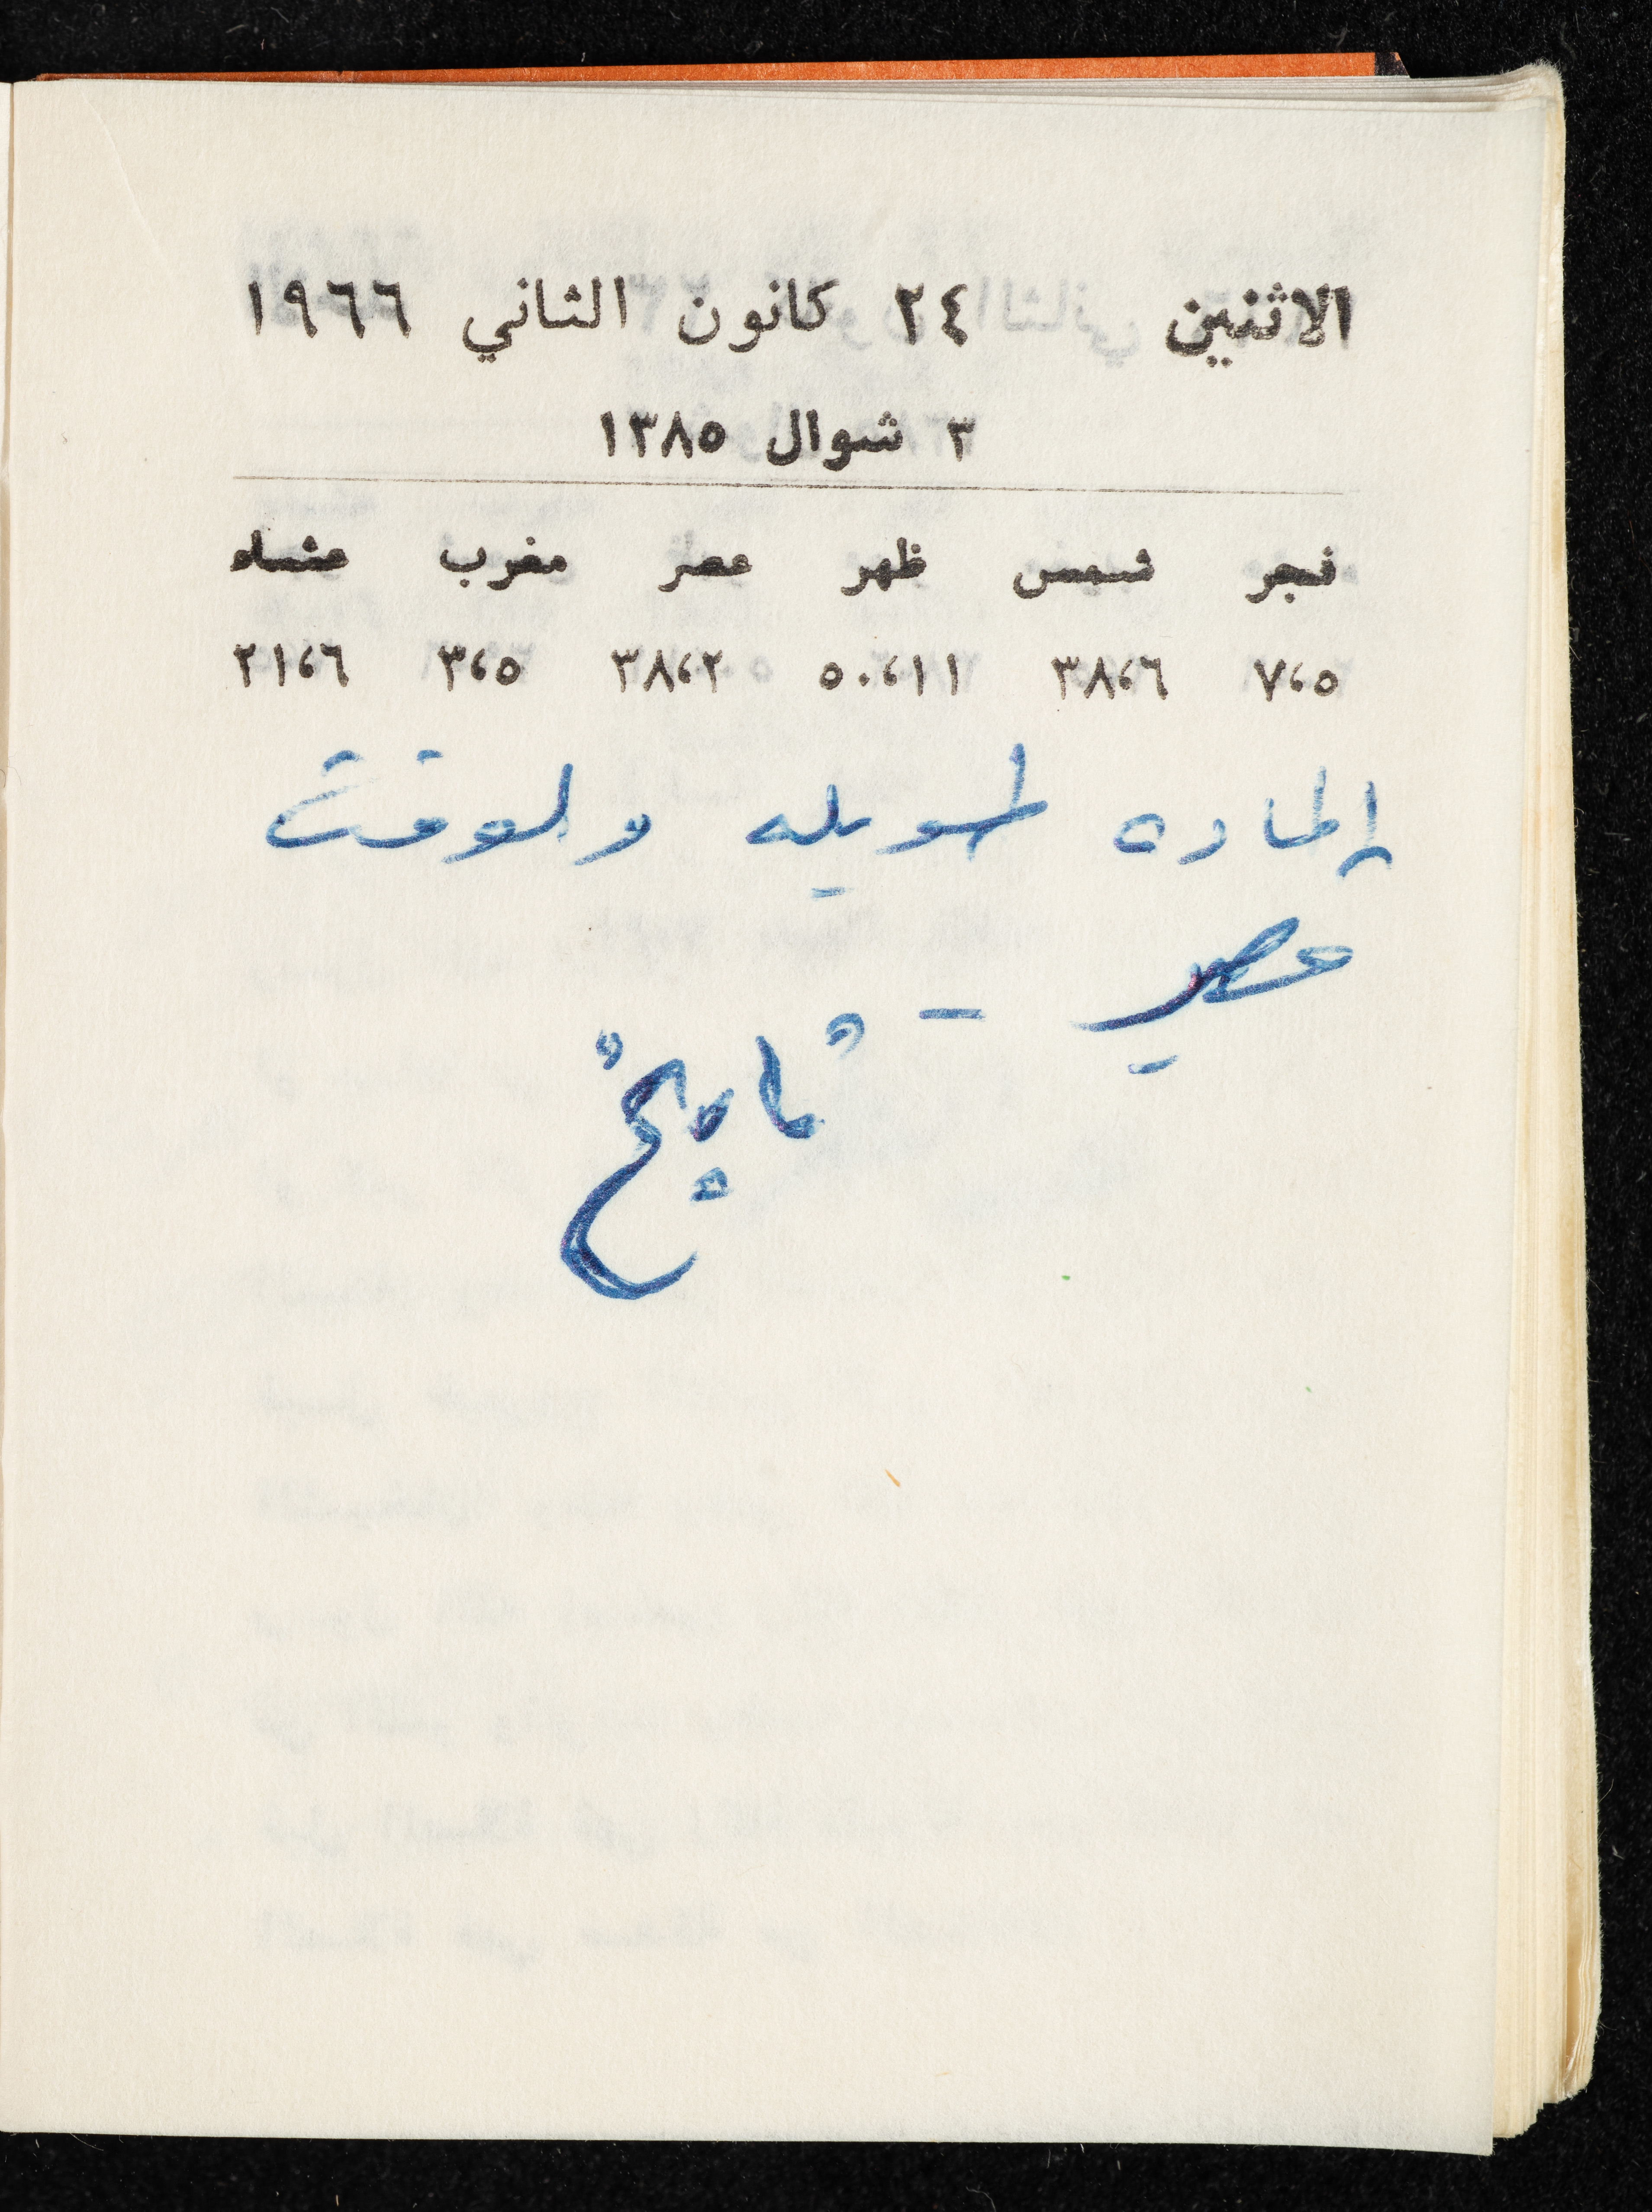 الاثنين ٢٤ كانون الثاني ١٩٦٦
٣ شوال ١٣٨٥
فجر شمس ظهر عصر مغرب عشاء
٧،٥ ٣٨،٦ ٥٠،١١ ٣٨،٢ ٣،٥ ٢١،٦
الماده طويله والوقت
قصير - "تاريخ"